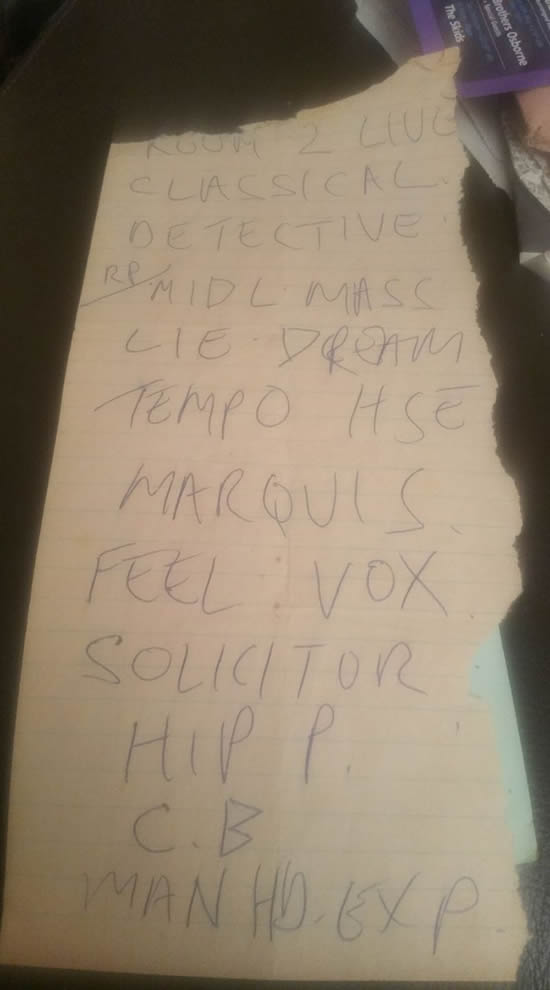 Brothers Osborne
The Skids
ROOM 2 LIVE
CLASSICAL.
DETECTIVE
RP/ MIDL. MASS
LIE DREAM
TEMPO HSE
MARQUIS.
FEEL. VOX
SOLICITOR
HIP P.
C.B
MAN HD. EXP.